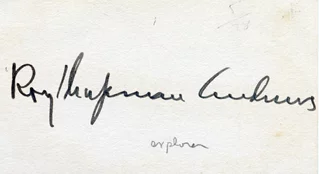 Roy Chapman Andrews
explorer